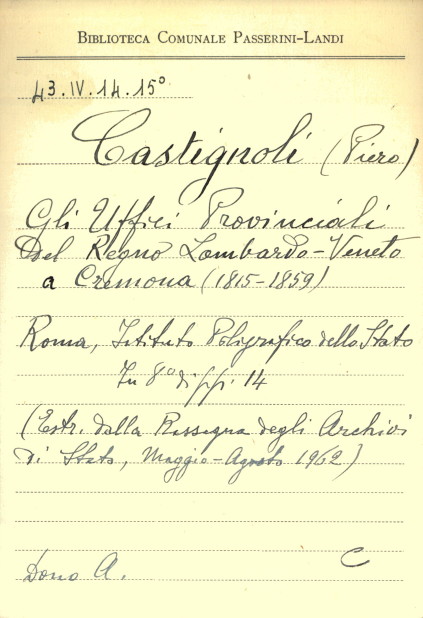 BIBLIOTECA COMUNALE PASSERINI-LANDI
43.IV.14.15°
Castignoli (Piero)
Gli Uffici Provinciali
del Regno Lombardo-Veneto
a Cremona (1815-1859)
Roma, Istituto Poligrafico dello Stato
In 8° di pp. 14
(Estr. dalla Rassegna degli Archivi
di Stato, Maggio-Agosto 1962)
Dono A. C